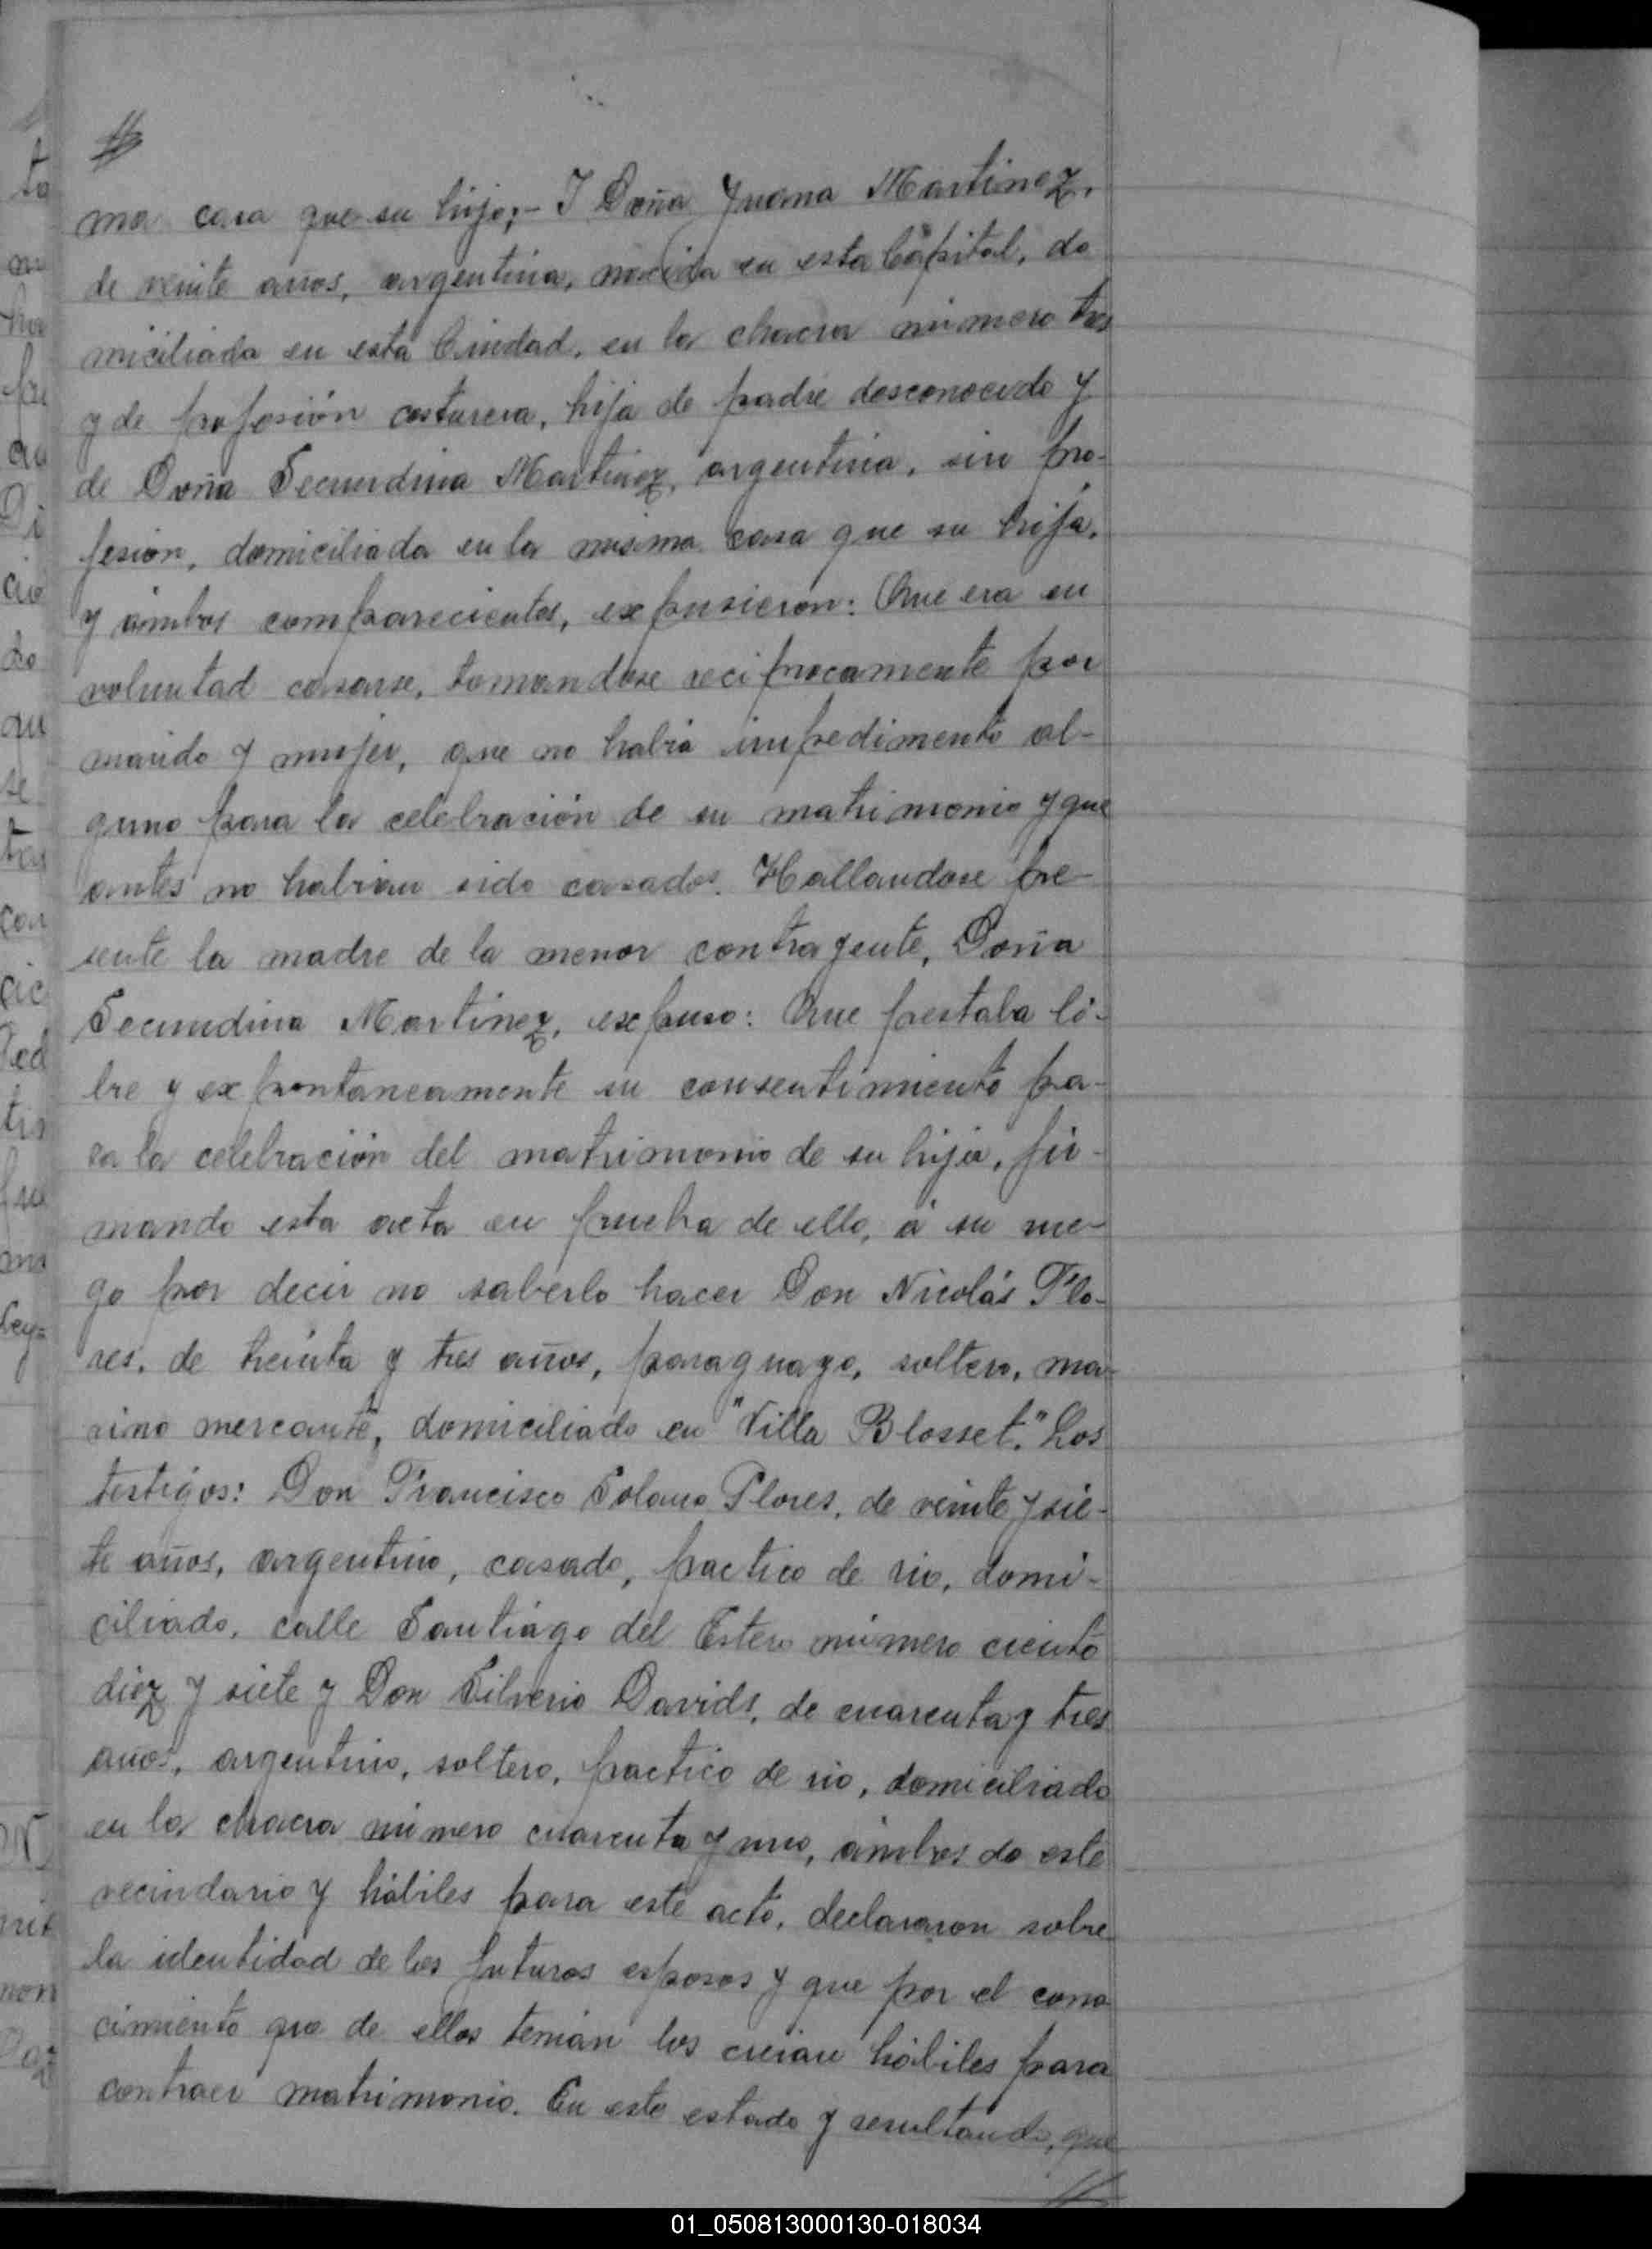 ma casa que su hijo;- I Doña Juana Martinez,
de veinte años, argentina, nacida en esta Capital, do
miciliada en esta Ciudad, en la chacra número tres
y de profesión costurera, hija de padre desconocido y
de Doña Secundina Martinez, argentina, sin pro-
fesión, domiciliada en la misma casa que su hija,
y ámbos comparecientes, expusieron: Que era su
voluntad casarse, tomandose reciprocamente por
marido y mujer, que no habia impedimento al-
guno para la celebración de su matrimonio y que
antes no habian sido casados. Hallandose pre-
sente la madre de la menor contrayente, Doña
Secundina Martinez, expuso: Que prestaba li-
bre y expontaneamente su consentimiento pa-
ra la celebración del matrimonio de su hija, fir-
mando esta acta en prueba de ello, á su rue-
go por decir no saberlo hacer Don Nicolás Flo-
res, de treinta y tres años, paraguayo, soltero, ma-
rino mercante, domiciliado en "Villa Blosset." Los
testigos: Don Francisco Solano Flores, de veinte y sie-
te años, argentino, casado, practico de rio, domi-
ciliado, calle Santiágo del Estero número ciento
diez y siete y Don Silverio Davids, de cuarenta y tres
años, argentino, soltero, practico de rio, domiciliado
en la chacra número cuarenta y uno, ámbos de este
vecindario y hábiles para este acto, declararon sobre
la identidad de los futuros esposos y que por el cono
cimiento que de ellos tenian los creian hábiles para
contraer matrimonio. En este estado y resultando, que
01_050813000130-018034